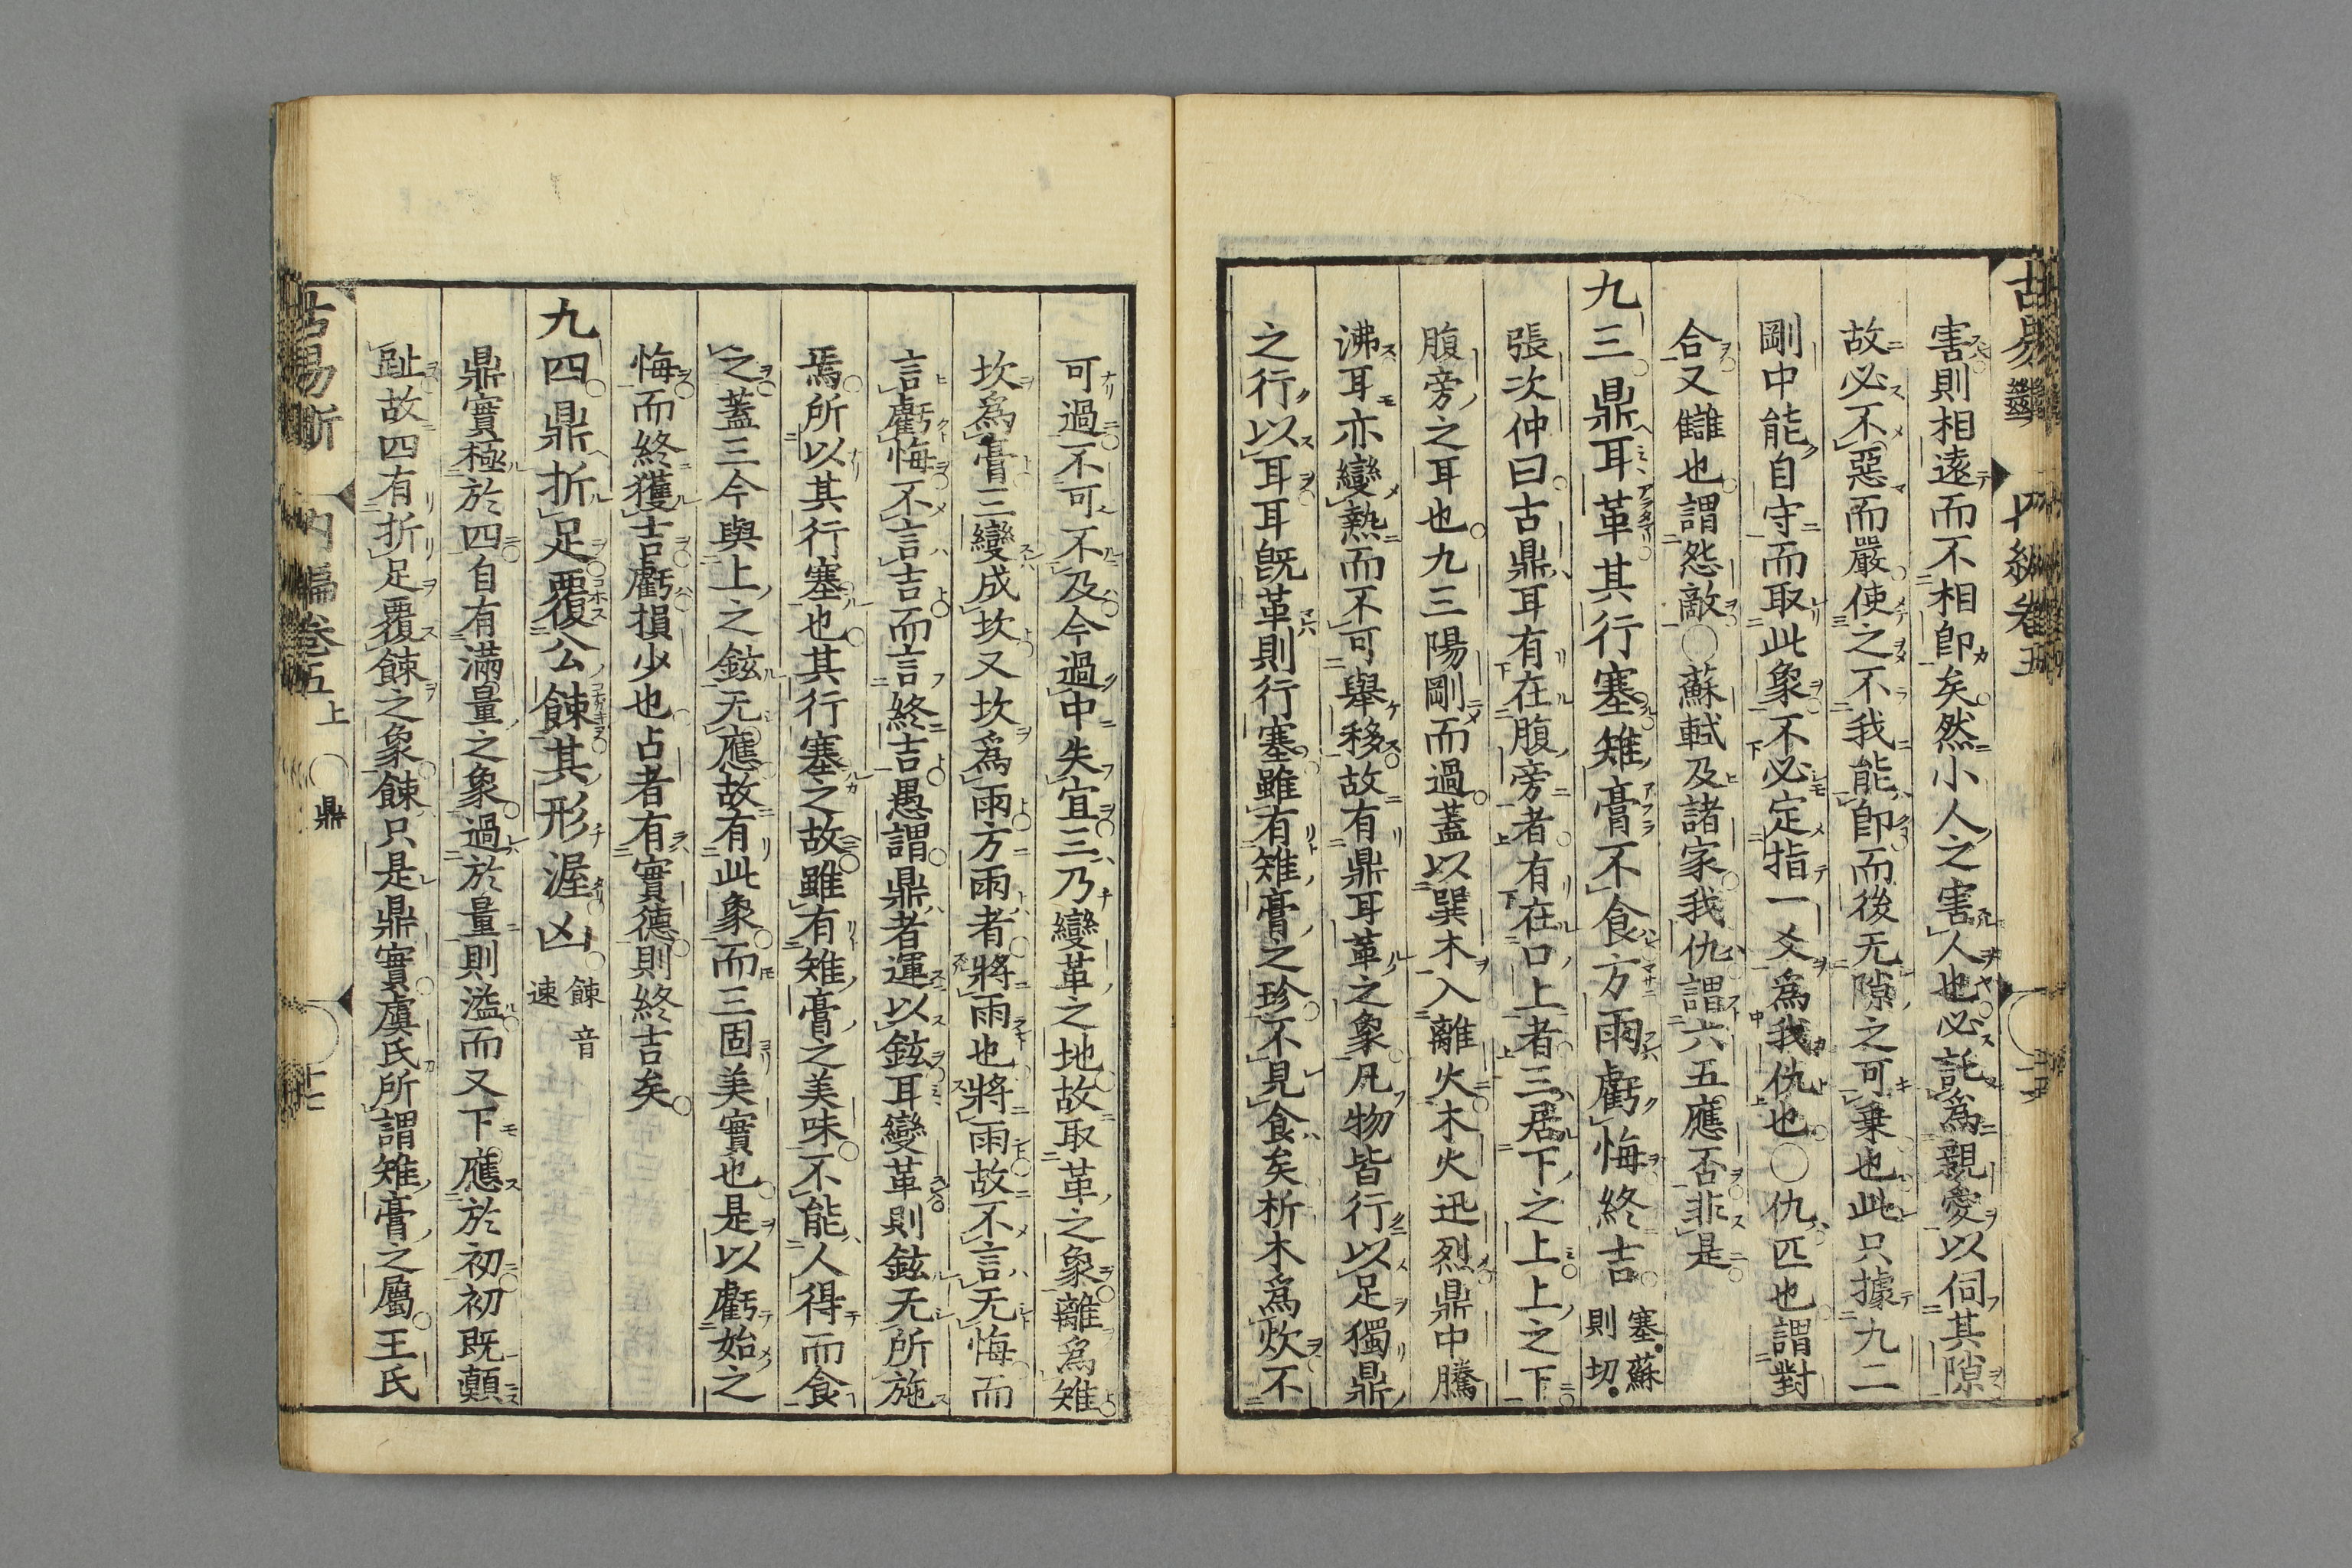 害則相遠而不相卽矣然小人之害人也必託爲親愛以伺其隙
故必不惡而嚴使之不我能卽而後无隙之可乗也此只據九二
剛中能自守而取此象不必定指一爻爲我仇也〇仇匹也謂對
合又讎也謂怨敵〇蘇軾及諸家我仇謂六五應否非是
九三鼎耳革其行塞雉膏不食方雨虧悔終吉 塞蘇則切
張次仲曰古鼎耳有在腹旁者有在口上者三居下之上上之下
腹旁之耳也九三陽剛而過蓋以巽木入離火木火迅烈鼎中騰
沸耳亦變熱而不可舉移故有鼎耳革之象凡物皆行以足獨鼎
之行以耳耳旣革則行塞雖有雉膏之珍不見食矣析木爲炊不
可過不可不及今過中失宜三乃變革之地故取革之象離爲雉
坎爲膏三變成坎又坎爲雨方雨者將雨也將雨故不言无悔而
言虧悔不言吉而言終吉愚謂鼎者運以鉉耳變革則鉉无所施
焉所以其行塞也其行塞之故雖有雉膏之美味不能人得而食
之蓋三今與上之鉉无應故有此象而三固美實也是以虧始之
悔而終獲吉虧損少也占者有實德則終吉矣
九四鼎折足覆公餗其形渥凶 餗音速
鼎實極於四自有滿量之象過於量則溢而又下應於初初既顛
趾故四有折足覆餗之象餗只是鼎實虞氏所謂雉膏之屬王氏
古易斷 内編卷五上 〇鼎